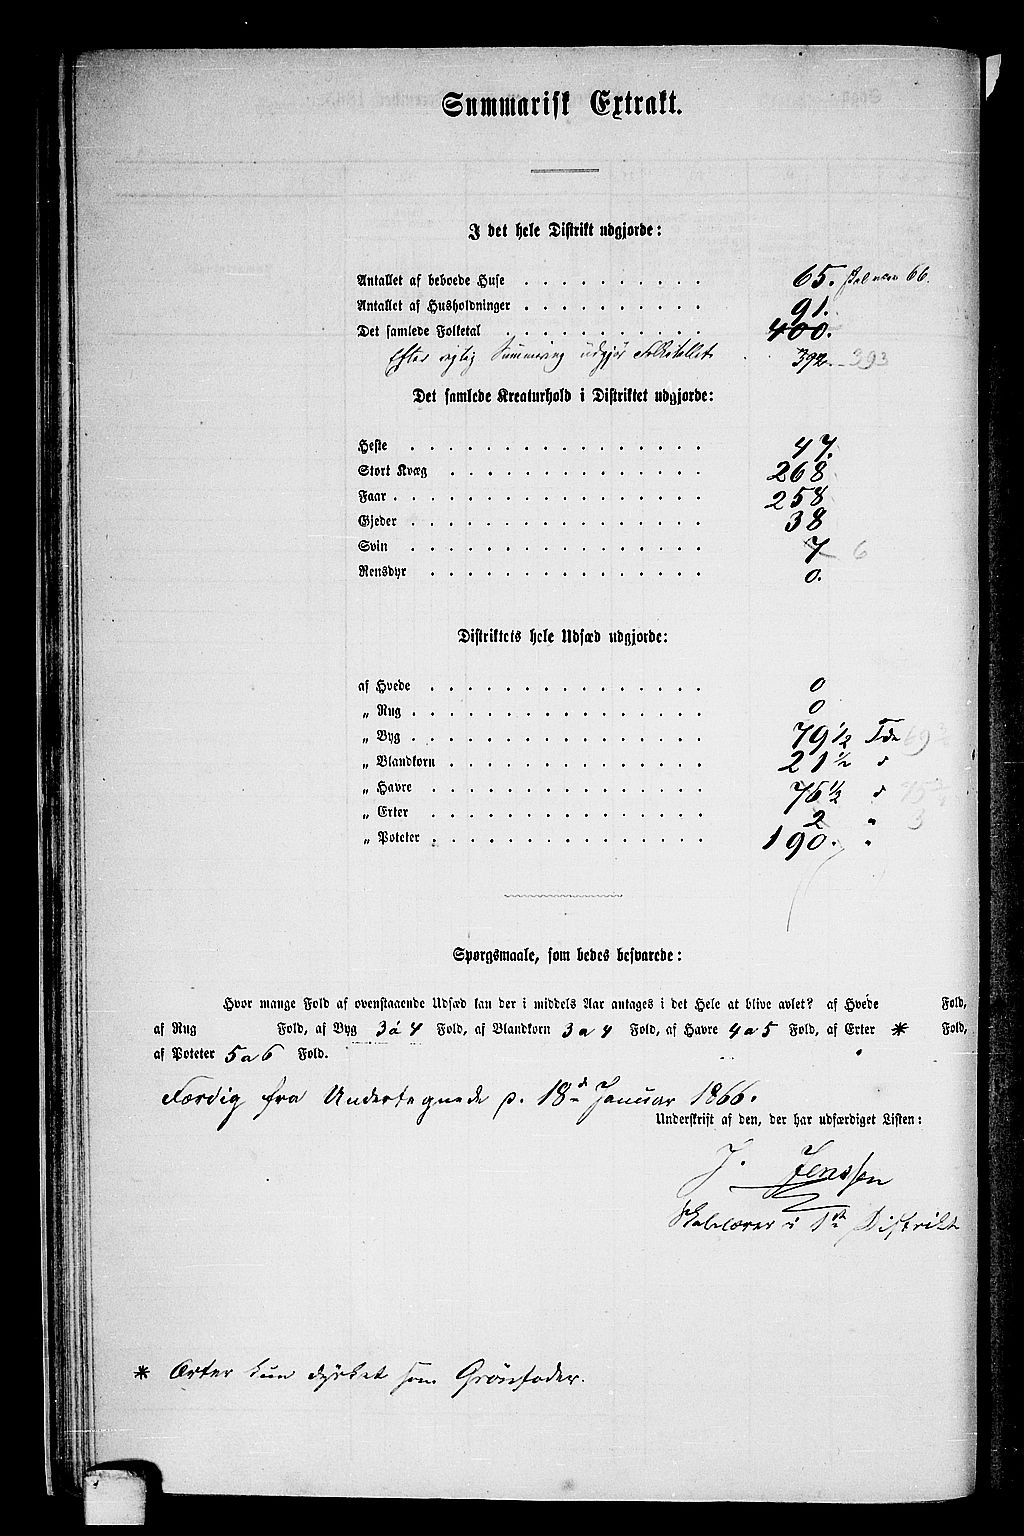 Summarisk Extrakt.
I det hele Distrikt udgjorde:
Antallet af beboede Huse 65. skal være 66.
Antallet af Husholdninger 91.
Det samlede Folketal 400.
Efter rigtig Summering udgjør Folketallet 392. 393
Det samlede Kreaturhold i Distriktet udgjorde:
Heste 47.
Stort Kvæg 268
Faar 258
Gjeder 38
Svin 7 6
Rensdyr 0.
Distriktets hele Udsæd udgjorde:
af Hvede 0
„ Rug 0
„ Byg 79 1/2 Tdr 69
„ Blandkorn 21 1/2 "
„ Havre 76 1/2 " 75
„ Erter 2 " 3
„ Poteter 190. "
Spørgsmaale, som bedes besvarede:
Hvor mange Fold af ovenstaaende Udsæd kan der i middels Aar antages i det Hele at blive avlet? af Hvede Fold,
af Rug Fold, af Byg 3 á 4 Fold, af Blandkorn 3 a 4 Fold, af Havre 4 a 5 Fold, af Erter * Fold,
af Poteter 5 a 6 Fold.
Færdig fra Undertegnede d. 18de Januar 1866.
Underskrift af den, der har udfærdiget Listen:
J. Jenssen
Skolelærer i 1ste Distrikt
* Erter kun dyrket som Grönfoder.